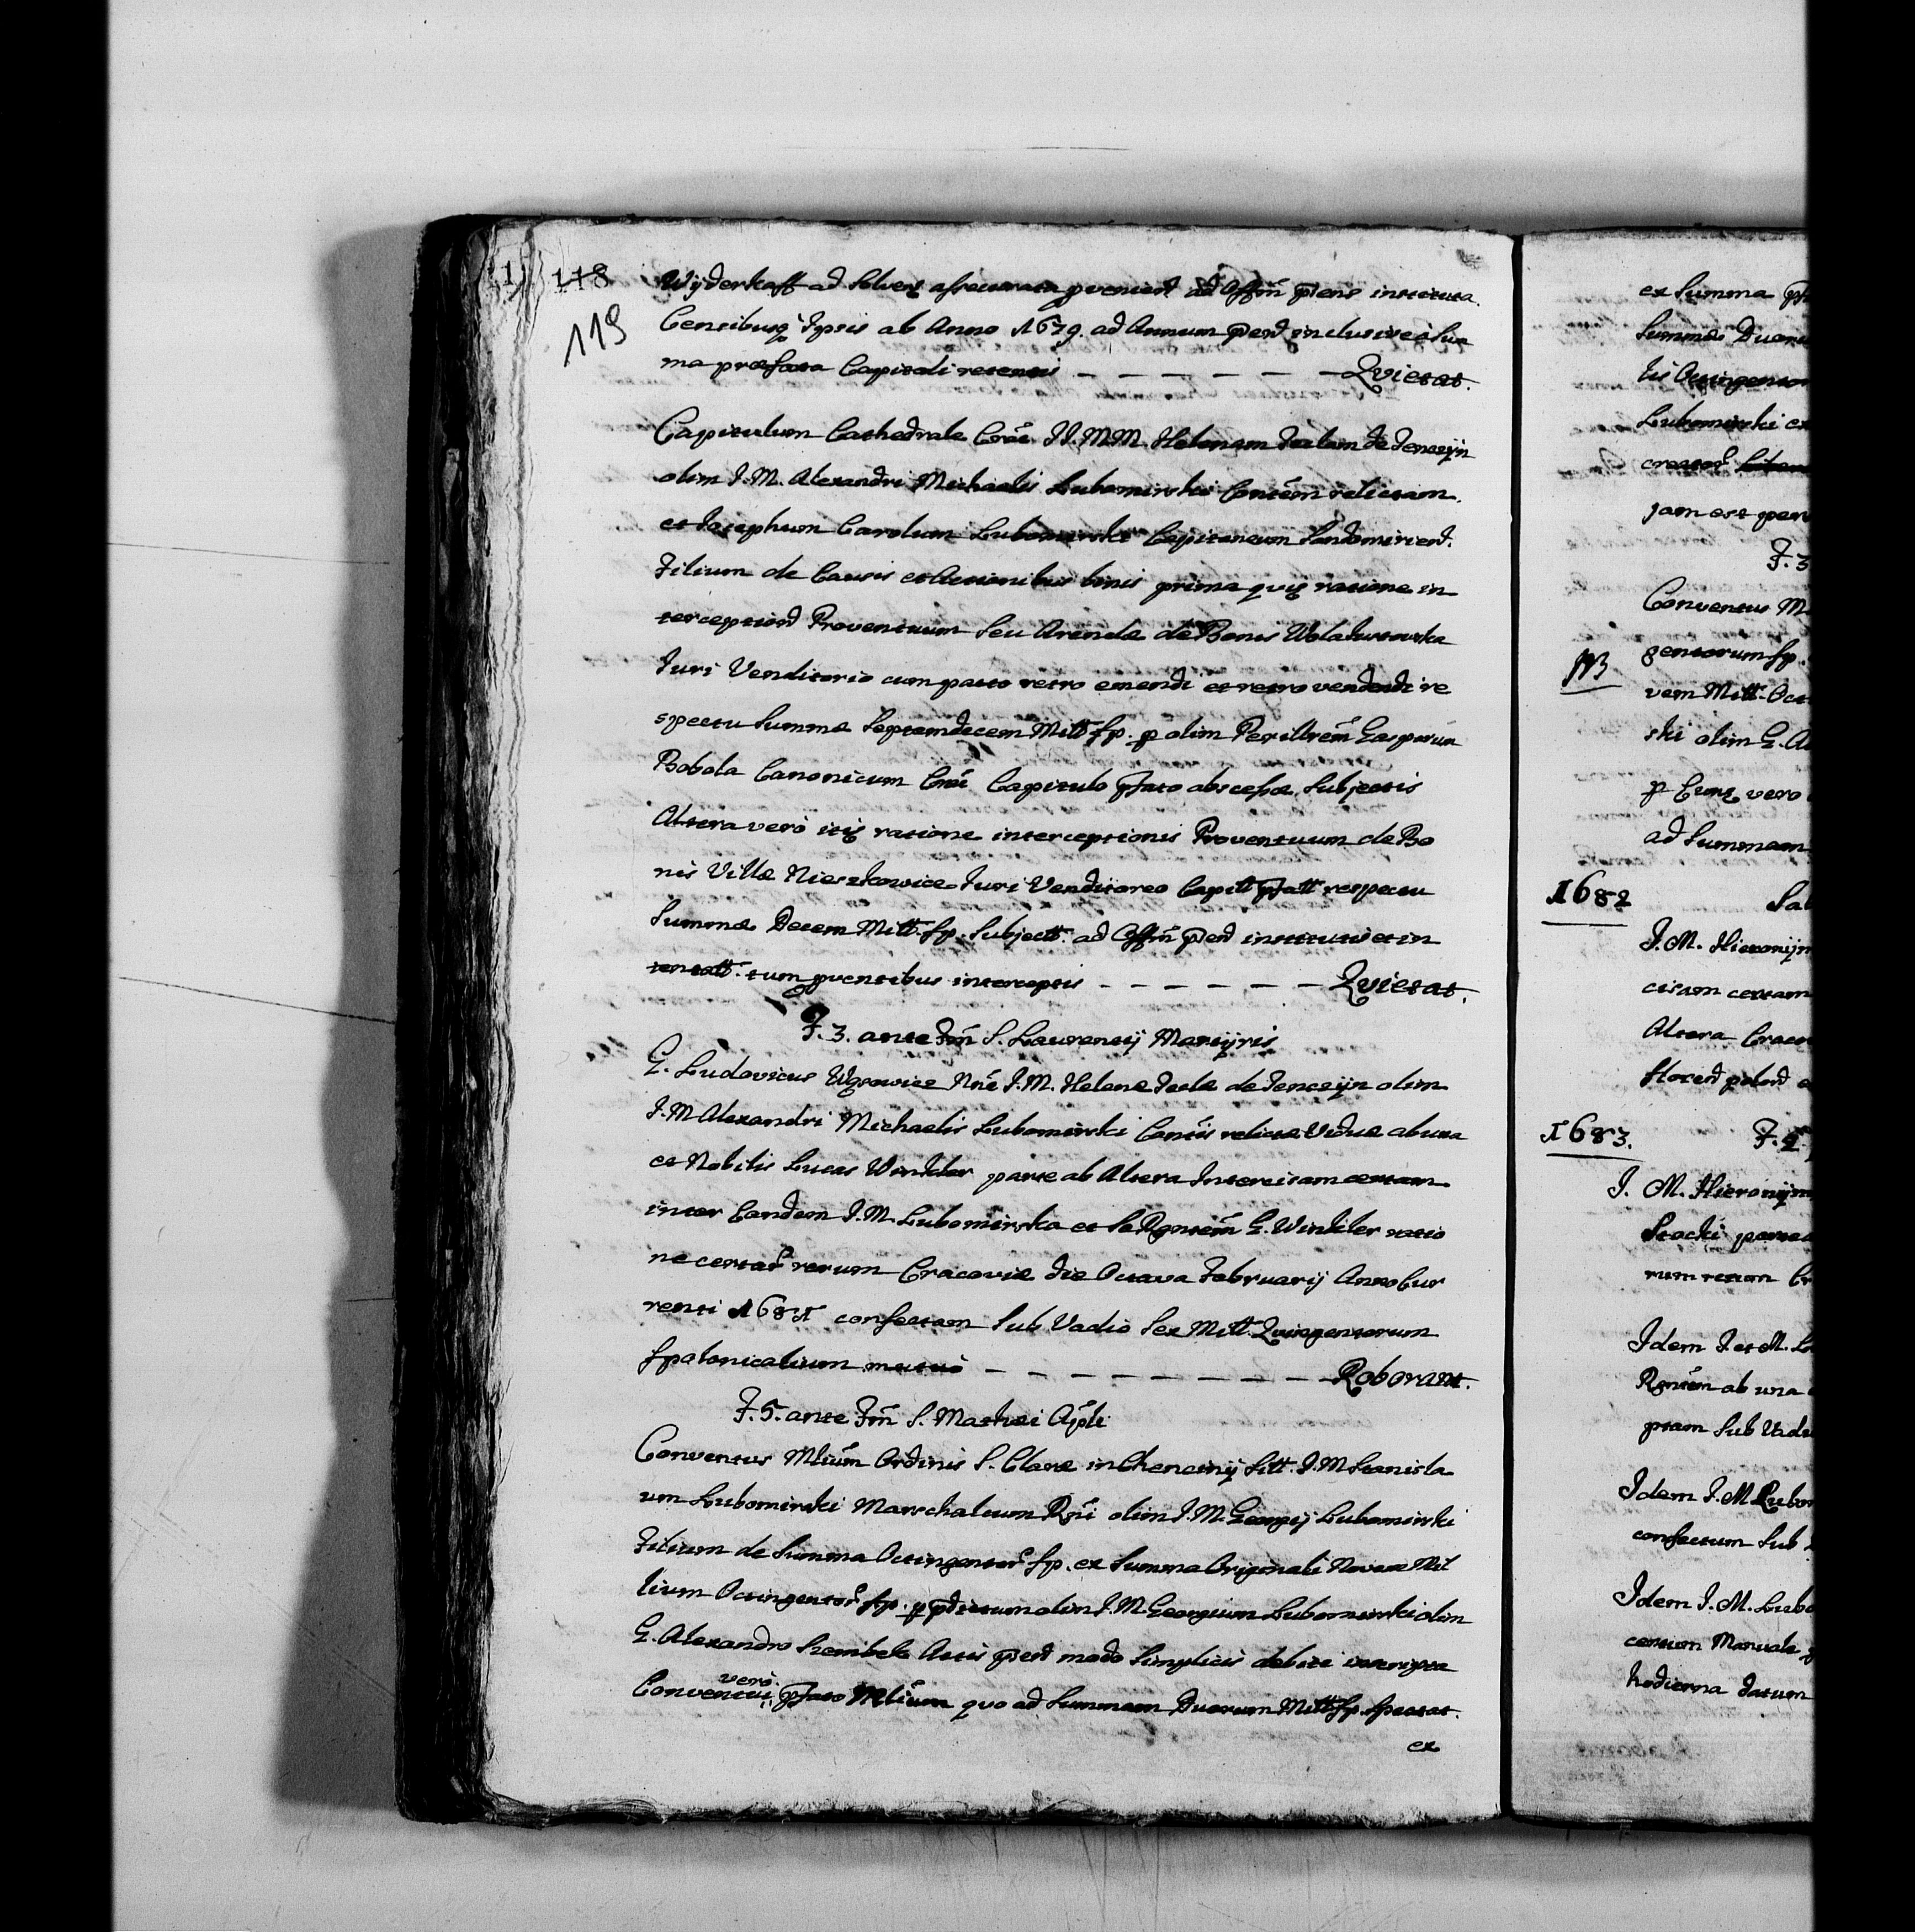 118
119
Wyderkaff ad Solven assecurata provenien ad Offm prens instituta
Censibusq Ipsis ab Anno 1679. ad Annum pred inclusive à Sum
ma præfata Capitali retentis — — — — — — Qvietat.
Capitulum Cathedrale Crac̃. II. MM. Helenam Teclam de Tenczyn
olim I. M. Alexandri Michaelis Lubomirski Contem relictam
et Josephum Carolum Lubomirski Capitaneum Sandomirien.
Filium de Causis et Actionibus binis prima quiq ratione in
terception Proventuum Seu Arendæ de Bonis Wola
Juri Venditorio cum pacto retro emendi et retro vendendi re
spectu Summæ Septemdecem Mill fp. p olim Perillrem Gasparum
Bobola Canonicum Crac̃ Capitulo pfato Subjectis
Altera verò itiq ratione interceptionis Proventuum de Bo
nis Villæ Nieszkowice Juri Venditoreo Capitl pfatt respectu
Summæ Decem Mill. fp. Subjectt. ad Offm pred institutis et in
tentatt. tum pventibus interceptis — — — — — — Qvietat.
F. 3. ante Fm S. Laurentij Martyris
G. Ludovicus Wąsowicz Nne I. M. Helenæ Teclæ de Tenczyn olim
I. M Alexandri Michaelis Lubomirski Contis relictæ Viduæ ab una
et Nobilis Lucas Winkler parte ab Altera Intercisam certam
inter Eandem I. M. Lubomirska et Se Rgntem G. Winkler ratio
ne certar rerum Cracoviæ die Octava Februarij Anno Cur
renti 1681 confectam Sub Vadio Sex Mill. Quingentorum
fpolonicalium mutuò — — — — — — — — — Roborant.
F. 5. ante Fm S. Mathæi Apli
Conventus Mlium Ordinis S. Claræ in Chenciny Sitt. I. M Stanisla
um Lubomirski Marschalcum Rni olim I. M. Georgij Lubomirski
Filium de Summa Octingentor fp. ex Summa Originali Novem Mil
lium Octingentor fp. p pdictum olim I. M Georgium Lubomirski olim
G. Alexandro Szembek Actis pred modo Simplicis debiti inscripta
vero
Conventui pfato Mlium quo ad Summam Duorum Mill fp. Spectat.
ex
ex Summa
Summæ
tis Octingentor
Lubomirski ex
creator
jam est
F. 3
Conventus M
NB
gentorum fp.
vem Mill. Oct
ski olim G. A
p vero
ad Summam
1682
Sab
I. M. Hieronym
cisam certam
Altera Cracov
1683.
F. 2
I. M. Hieronym
Stocki
rum rerum Cr
Idem I et M. Lu
Rgntem ab una
ptam Sub Vadi
Idem I. M Lubom
confectum Sub
Idem I. M. Lubo
certum Manuale
hodierna datum